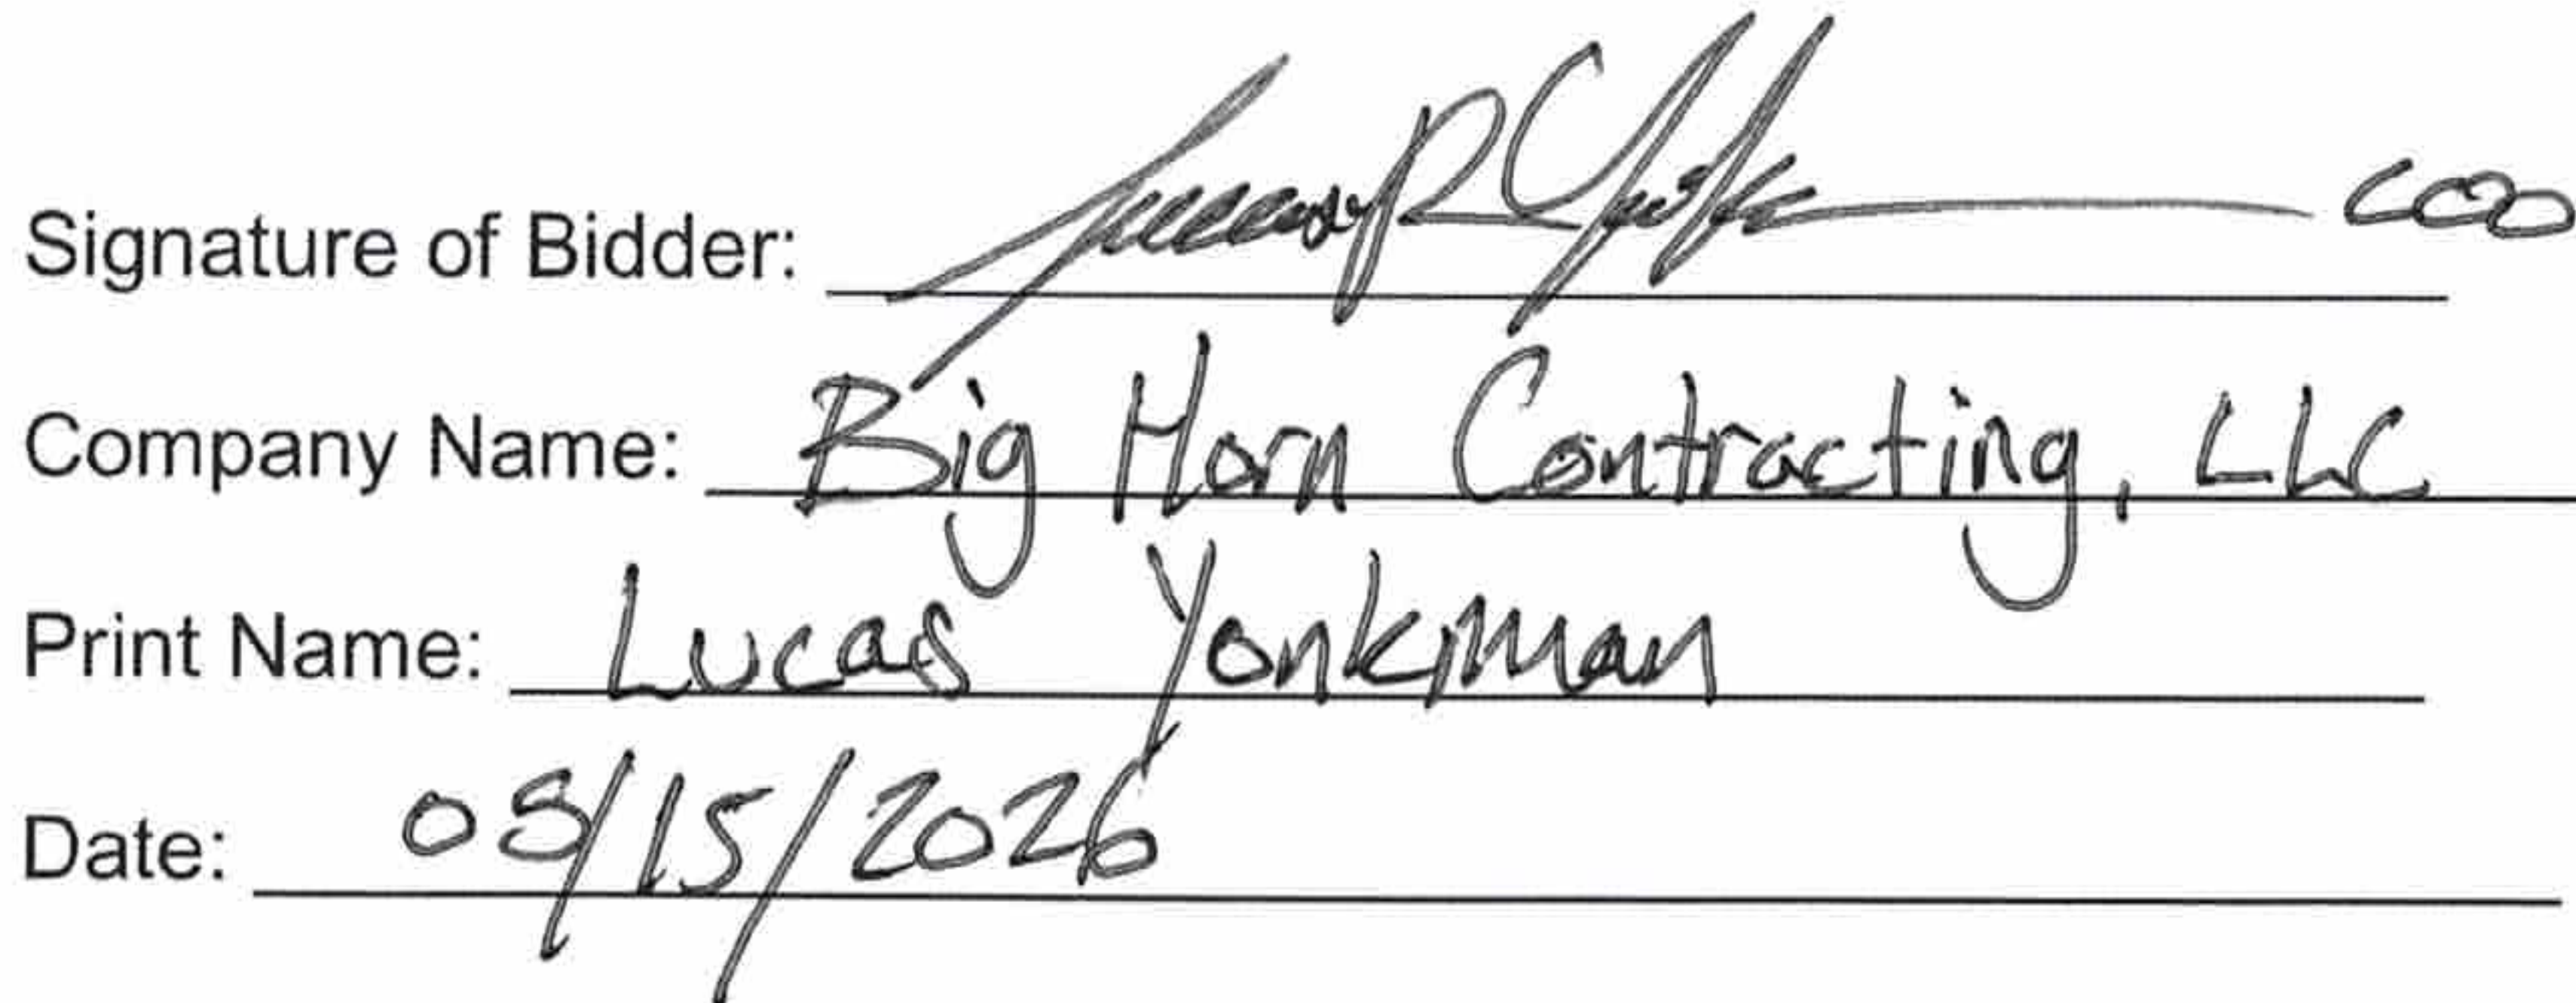 Signature of Bidder: COO
Company Name: Big Horn Contracting, LLC
Print Name: Lucas Yonkman
Date: 05/15/2026